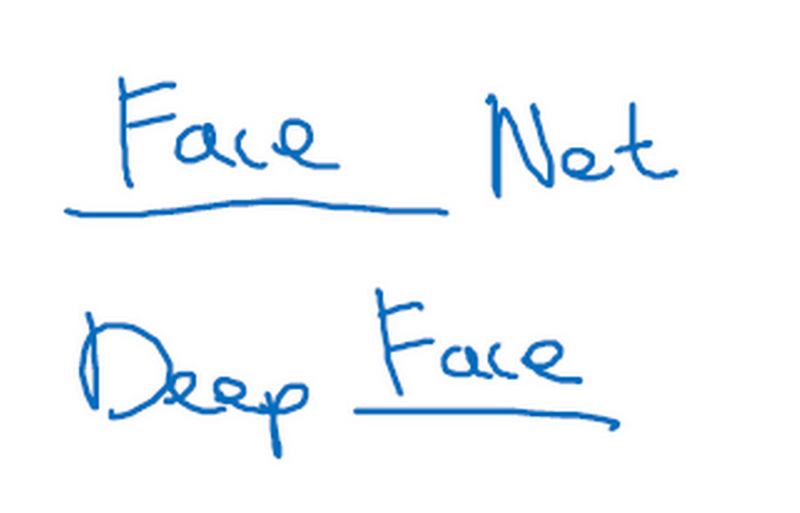 Face Net
Deep Face